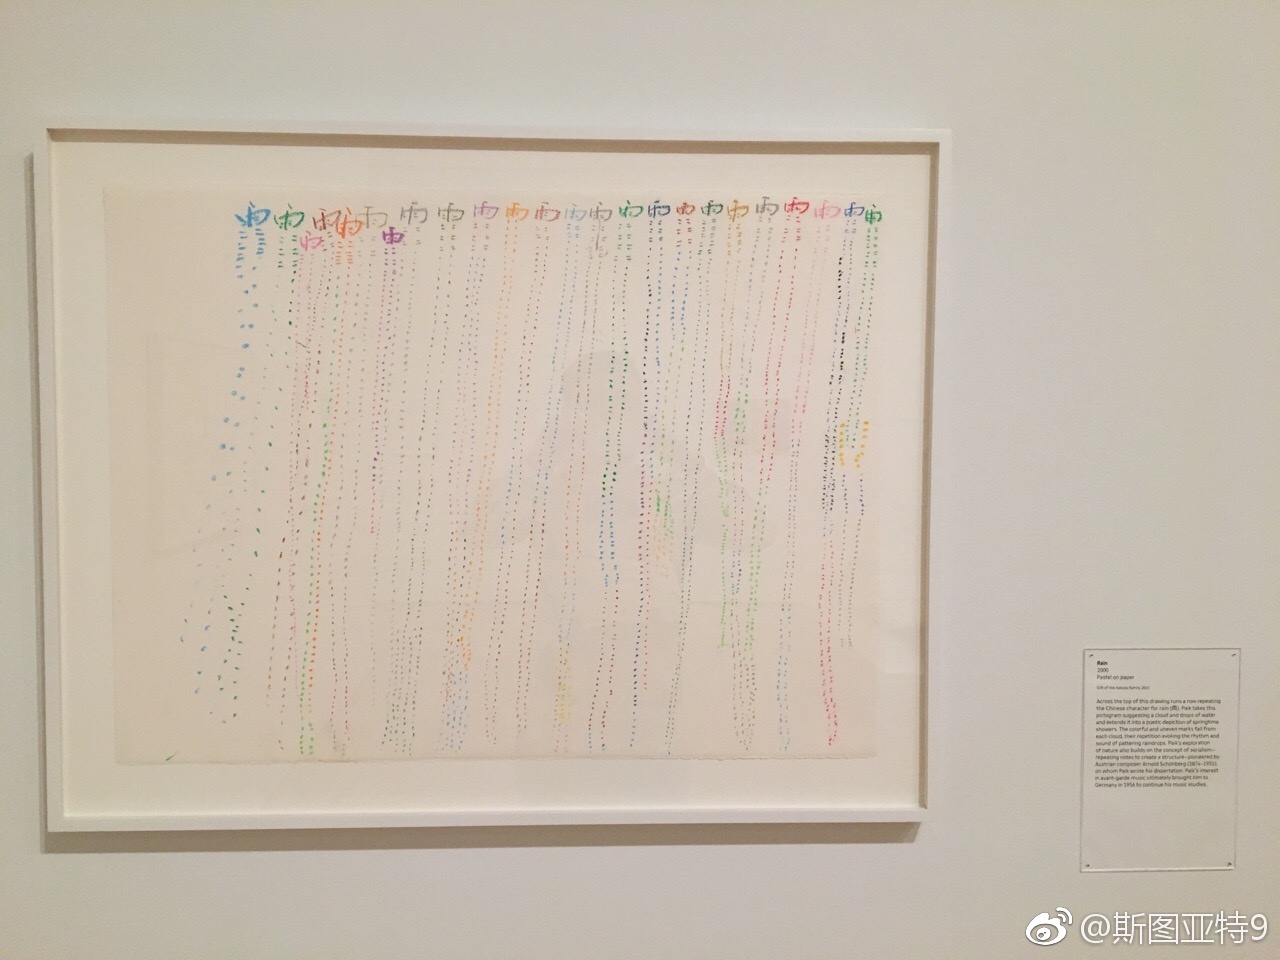 雨雨雨雨雨雨雨雨雨雨雨雨雨雨雨雨雨雨雨雨雨雨
雨雨
Rain
2000
Pastel on paper
Gift of the Hakuta Family, 2015
Across the top of this drawing runs a row repeating
the Chinese character for rain (雨). Paik takes this
pictogram suggesting a cloud and drops of water
and extends it into a poetic depiction of springtime
showers. The colorful and uneven marks fall from
each cloud, their repetition evoking the rhythm and
sound of pattering raindrops. Paik's exploration
of nature also builds on the concept of serialism—
repeating notes to create a structure—pioneered by
Austrian composer Arnold Schönberg (1874–1951),
on whom Paik wrote his dissertation. Paik's interest
in avant-garde music ultimately brought him to
Germany in 1956 to continue his music studies.
@斯图亚特9